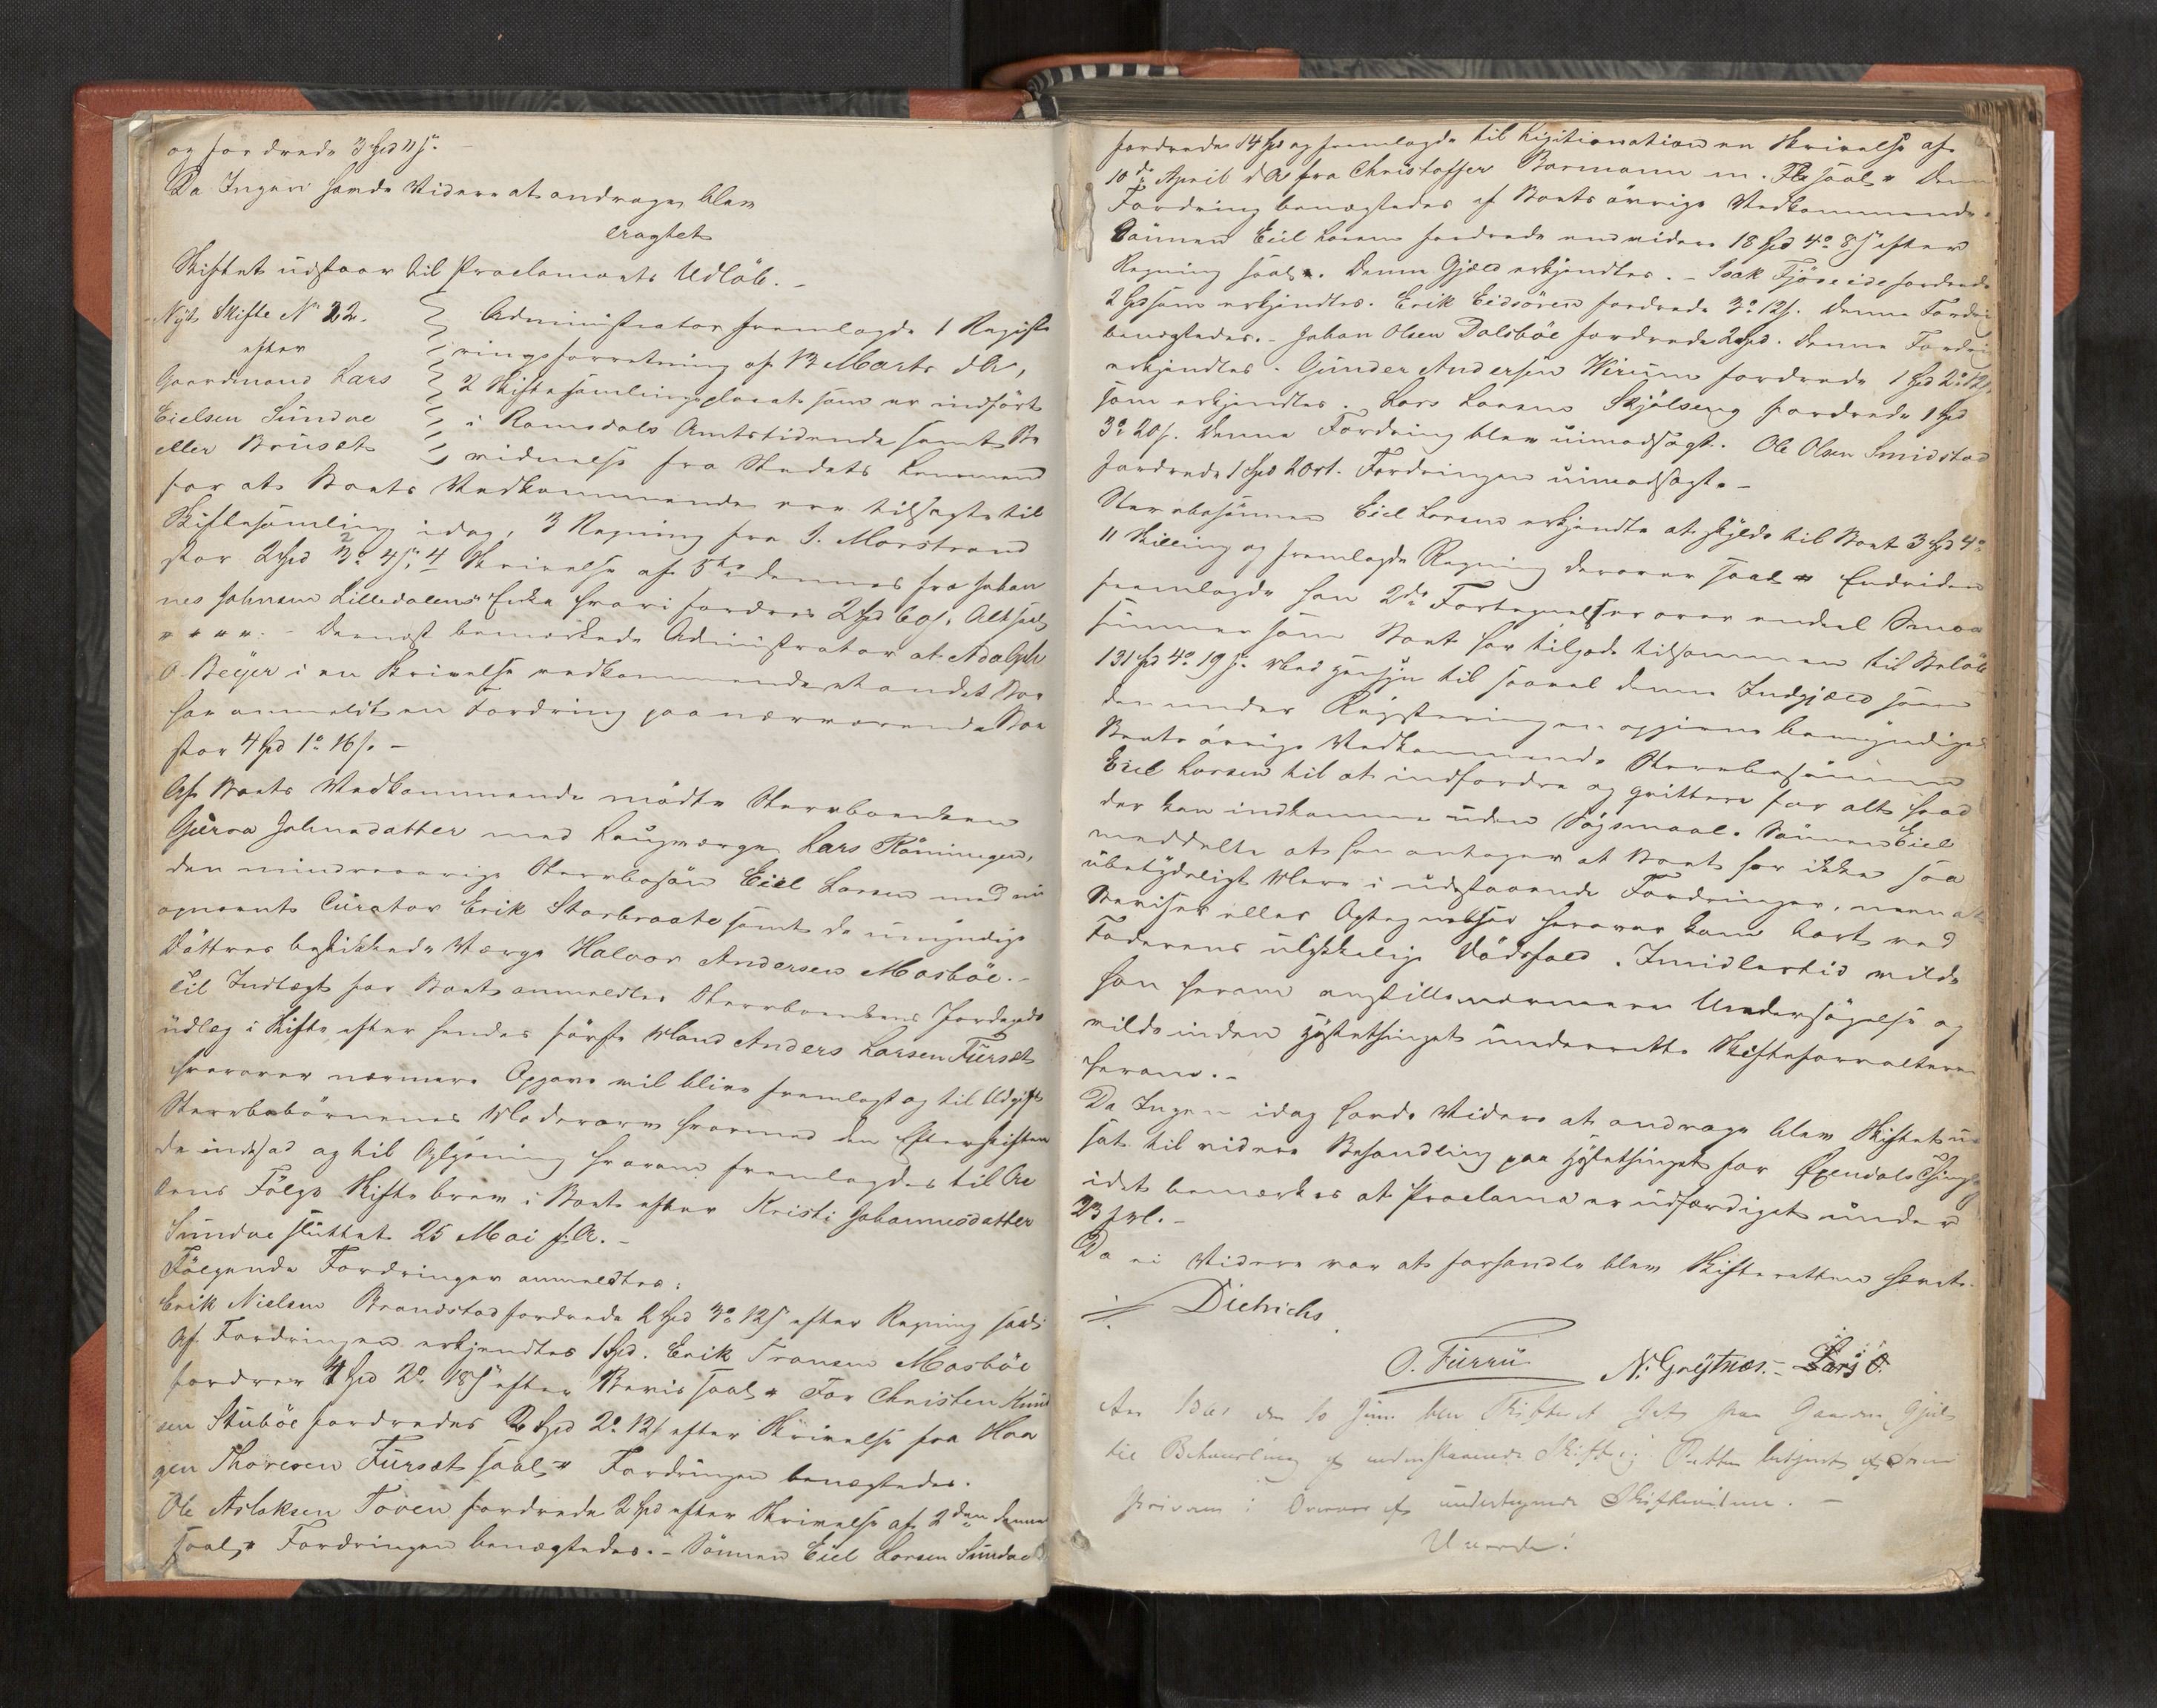 og fordrede 3 Spd 11 s.
Da Ingen havde Videre at andrage, blev
eragtet
Skiftet udstaar til Proclamaets Udløb. –
Nyt Skifte No 22.
efter
Gaardmand Lars
Eielsen Sundae
eller Bruset
Administrator fremlagde 1 Registe
ringsforretning af 13 Marts d.A.,
2 Skiftesamlingsplacat som er indført
i Romsdals Amtstidende samt Be
vidnelse fra Stedets Lensmand
for at Boets Vedkommende ere tilsagte til
Skiftesamling idag, 3 Regning fra J. Morstrand
stor 2 Spd 2o 4 s, 4 Skrivelse af 5te dennes fra Johan
nes Johnsen Lilledalens Enke hvori fordres 2 Spd 60 s. Alt saal.
" " " ". – Dernæst bemærkede Administrator at Adolph
O Beyer i en Skrivelse vedkommende et andet Bo
har anmeldt en Fordring paa nærværende Bo
stor 4 Spd 1o 16 s. –
Af Boets Vedkommende mødte Stervboenken
Gurva Johnsdatter med Laugværge Lars Röningen,
den mindreaarige Stervbosön Eiel Larsen med sin
opnævnte Curator Erik Storbraate samt de umyndige
Döttres beskikkede Værge Halvor Andersen Mosböe. –
Til Indtægt for Boet anmeldtes Stervboenkens Jordegods
udlæg i Skifte efter hendes første Mand Anders Larsen Fürset
hvorover nærmere Opgave vil blive fremlagt og til Udgift
Stervbobörnenes Mødrearv hvormed den Efterskiften
de indsad og til Oplysning hvorom fremlagdes til Ac
tens Følge Skiftebrev i Boet efter Kristi Johannesdatter
Sundae sluttet 25 Mai f.A. –
Følgende Fordringer anmeldtes:
Erik Nielsen Brandstad fordrede 2 Spd 3o 12 s efter Regning saal.
Af Fordringen erkjendtes 1 Spd. Erik Tronsen Mosböe
fordrer 4 Spd 2o 18 s efter Bevis saal. " For Christen Knud
sen Stuböe fordredes 2 Spd 2o 12 s efter Skrivelse fra Haa
gen Thoresen Fürset saal. " Fordringen benægtedes.
Ole Aslaksen Toven fordrede 2 Spd efter Skrivelse af 2den dennes
saal. " Fordringen benægtedes. – Sönnen Eiel Larsen Sundae
fordrede 14 Spd og fremlagde til Ligitimation en Skrivelse af
10de April d.A. fra Christoffer Bormann m. Fl. saal. " Denne
Fordring benægtedes af Boets øvrige Vedkommende.
Sönnen Eiel Larsen fordrede endvidere 18 Spd 4o 8 s efter
Regning saal. ". Denne Gjæld erkjendtes. – Isak Fjöseide fordrede
2 Spd som erkjendtes. Erik Eidsören fordrede 3o 12 s. Denne Fordri
benægtedes. – Johan Olsen Dalsböe fordrede 2 Spd. Denne Fordri
erkjendtes. Gunder Andersen Wirum fordrede 1 Spd 2o 12 s.
som erkjendtes. Lars Larsen Skjölseng fordrede 1 Spd
3o 20 s. Denne Fordring blev uimodsagt. Ole Olsen Smidstad
fordrede 1 Spd 2 Ort. Fordringen uimodsagt. –
Stervbosönnen Eiel Larsen erkjendte at skylde til Boet 3 Spd 4o
11 Skilling og fremlagde Regning derover saal. " Endvidere
fremlagde han 2de Fortegnelser over endeel Smaa
summer som Boet har tilgode tilsammen til Beløb
131 Spd 4o 19 s. Med Hensyn til saavel denne Indgjæld som
den under Registeringen opgivne bemyndiged
Boets øvrige Vedkommende Stervbosönnen
Eiel Larsen til at indfordre og qvittere for alt hvad
der kan indkomme uden Søgsmaal. Sönnen Eiel
meddelte at han antager at Boet har ikke saa
ubetydeligt Mere i udestaaende Fordringer, men at
Beviser eller Optegnelser herover kom bort ved
Faderens ulykkelige Dødsfald. Imidlertid vilde
han herom anstille nærmere Undersøgelse og
vilde inden Høstethinget underrette Skifteforvalteren
herom. –
Da Ingen idag havde Videre at andrage blev Skiftet ud
sat til videre Behandling paa Høstethinget for Øxendals Thingl
idet bemærkes at Proclama er udfærdiget under
23 f.M. –
Da ei Videre var at forhandle blev Skifteretten hævet.
Dietrichs
O. Fürru N. Grijtnæs. – Lars O.
Aar 1861 den 10 Juni blev Skifteret sat paa Gaarden
til Behandling af nedenstaaende Skifte; Retten betjent af Soren
skriveren i Overvær af undertegnede Skiftevidner. –